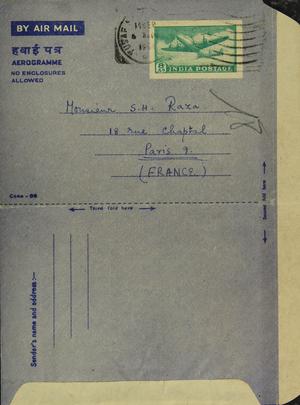 BY AIR MAIL
हवाई पत्र
AEROGRAMME
NO ENCLOSURES
ALLOWED
INDIA POSTAGE
Monsieur S.H. Raza
18 rue Chaptal
Paris 9.
(FRANCE)
Third fold here
Second fold here
Sender's name and address:—